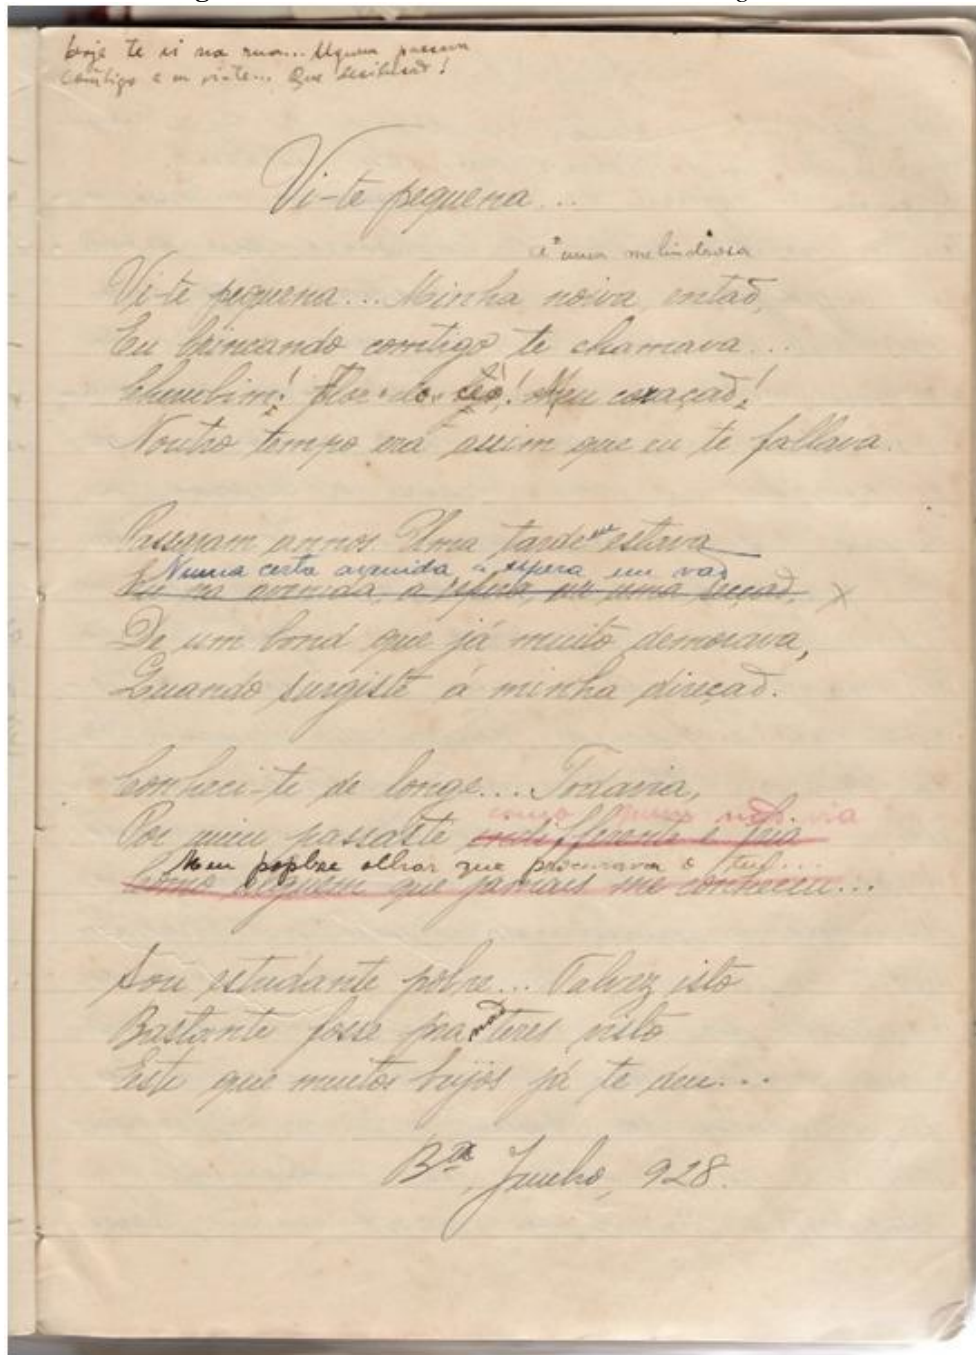 hoje te vi na rua... Alguem passava
comtigo e eu
Vi-te pequena...
a uma melindrosa
Vi-te pequena... Minha noiva, então,
Eu brincando comtigo te chamava...
Cherubim! Flor do céo! Meu coração!
Noutro tempo era assim que eu te fallava.
Passaram annos. Uma tarde eu estava
Numa certa avenida á espera em vão
Eu na avenida, á espera,
De um bond que já muito demorava,
Quando surgiste á minha direção.
Conheci-te de longe... Todavia,
como quem não via
Por mim passaste indifferente e fria
Meu popbre olhar que procurava o teu...
Como alguem que jamais me conheceu...
Sou estudante pobre... Talvez isto
não
Bastante fosse pra teres visto
Este que muitos beijos já te deu...
Bª, Junho, 928.